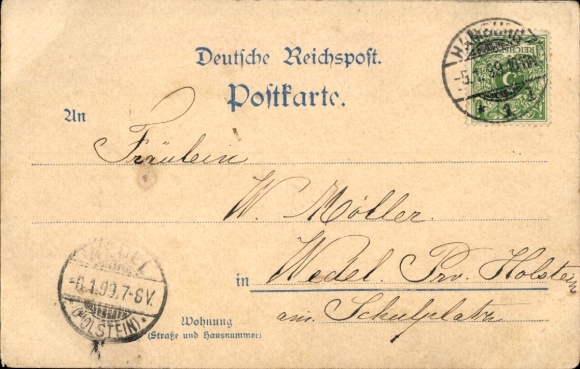 Deutsche Reichspost.
Postkarte.
HAMBURG
-5.1.99.
* 1 *
REICHSPOST
5
An
Fräulein
W. Möller.
in Wedel. Prv. Holstein
am Schulplatz
WEDEL
-6.1.99.7-8V.
(HOLSTEIN)
Wohnung
(Straße und Hausnummer)